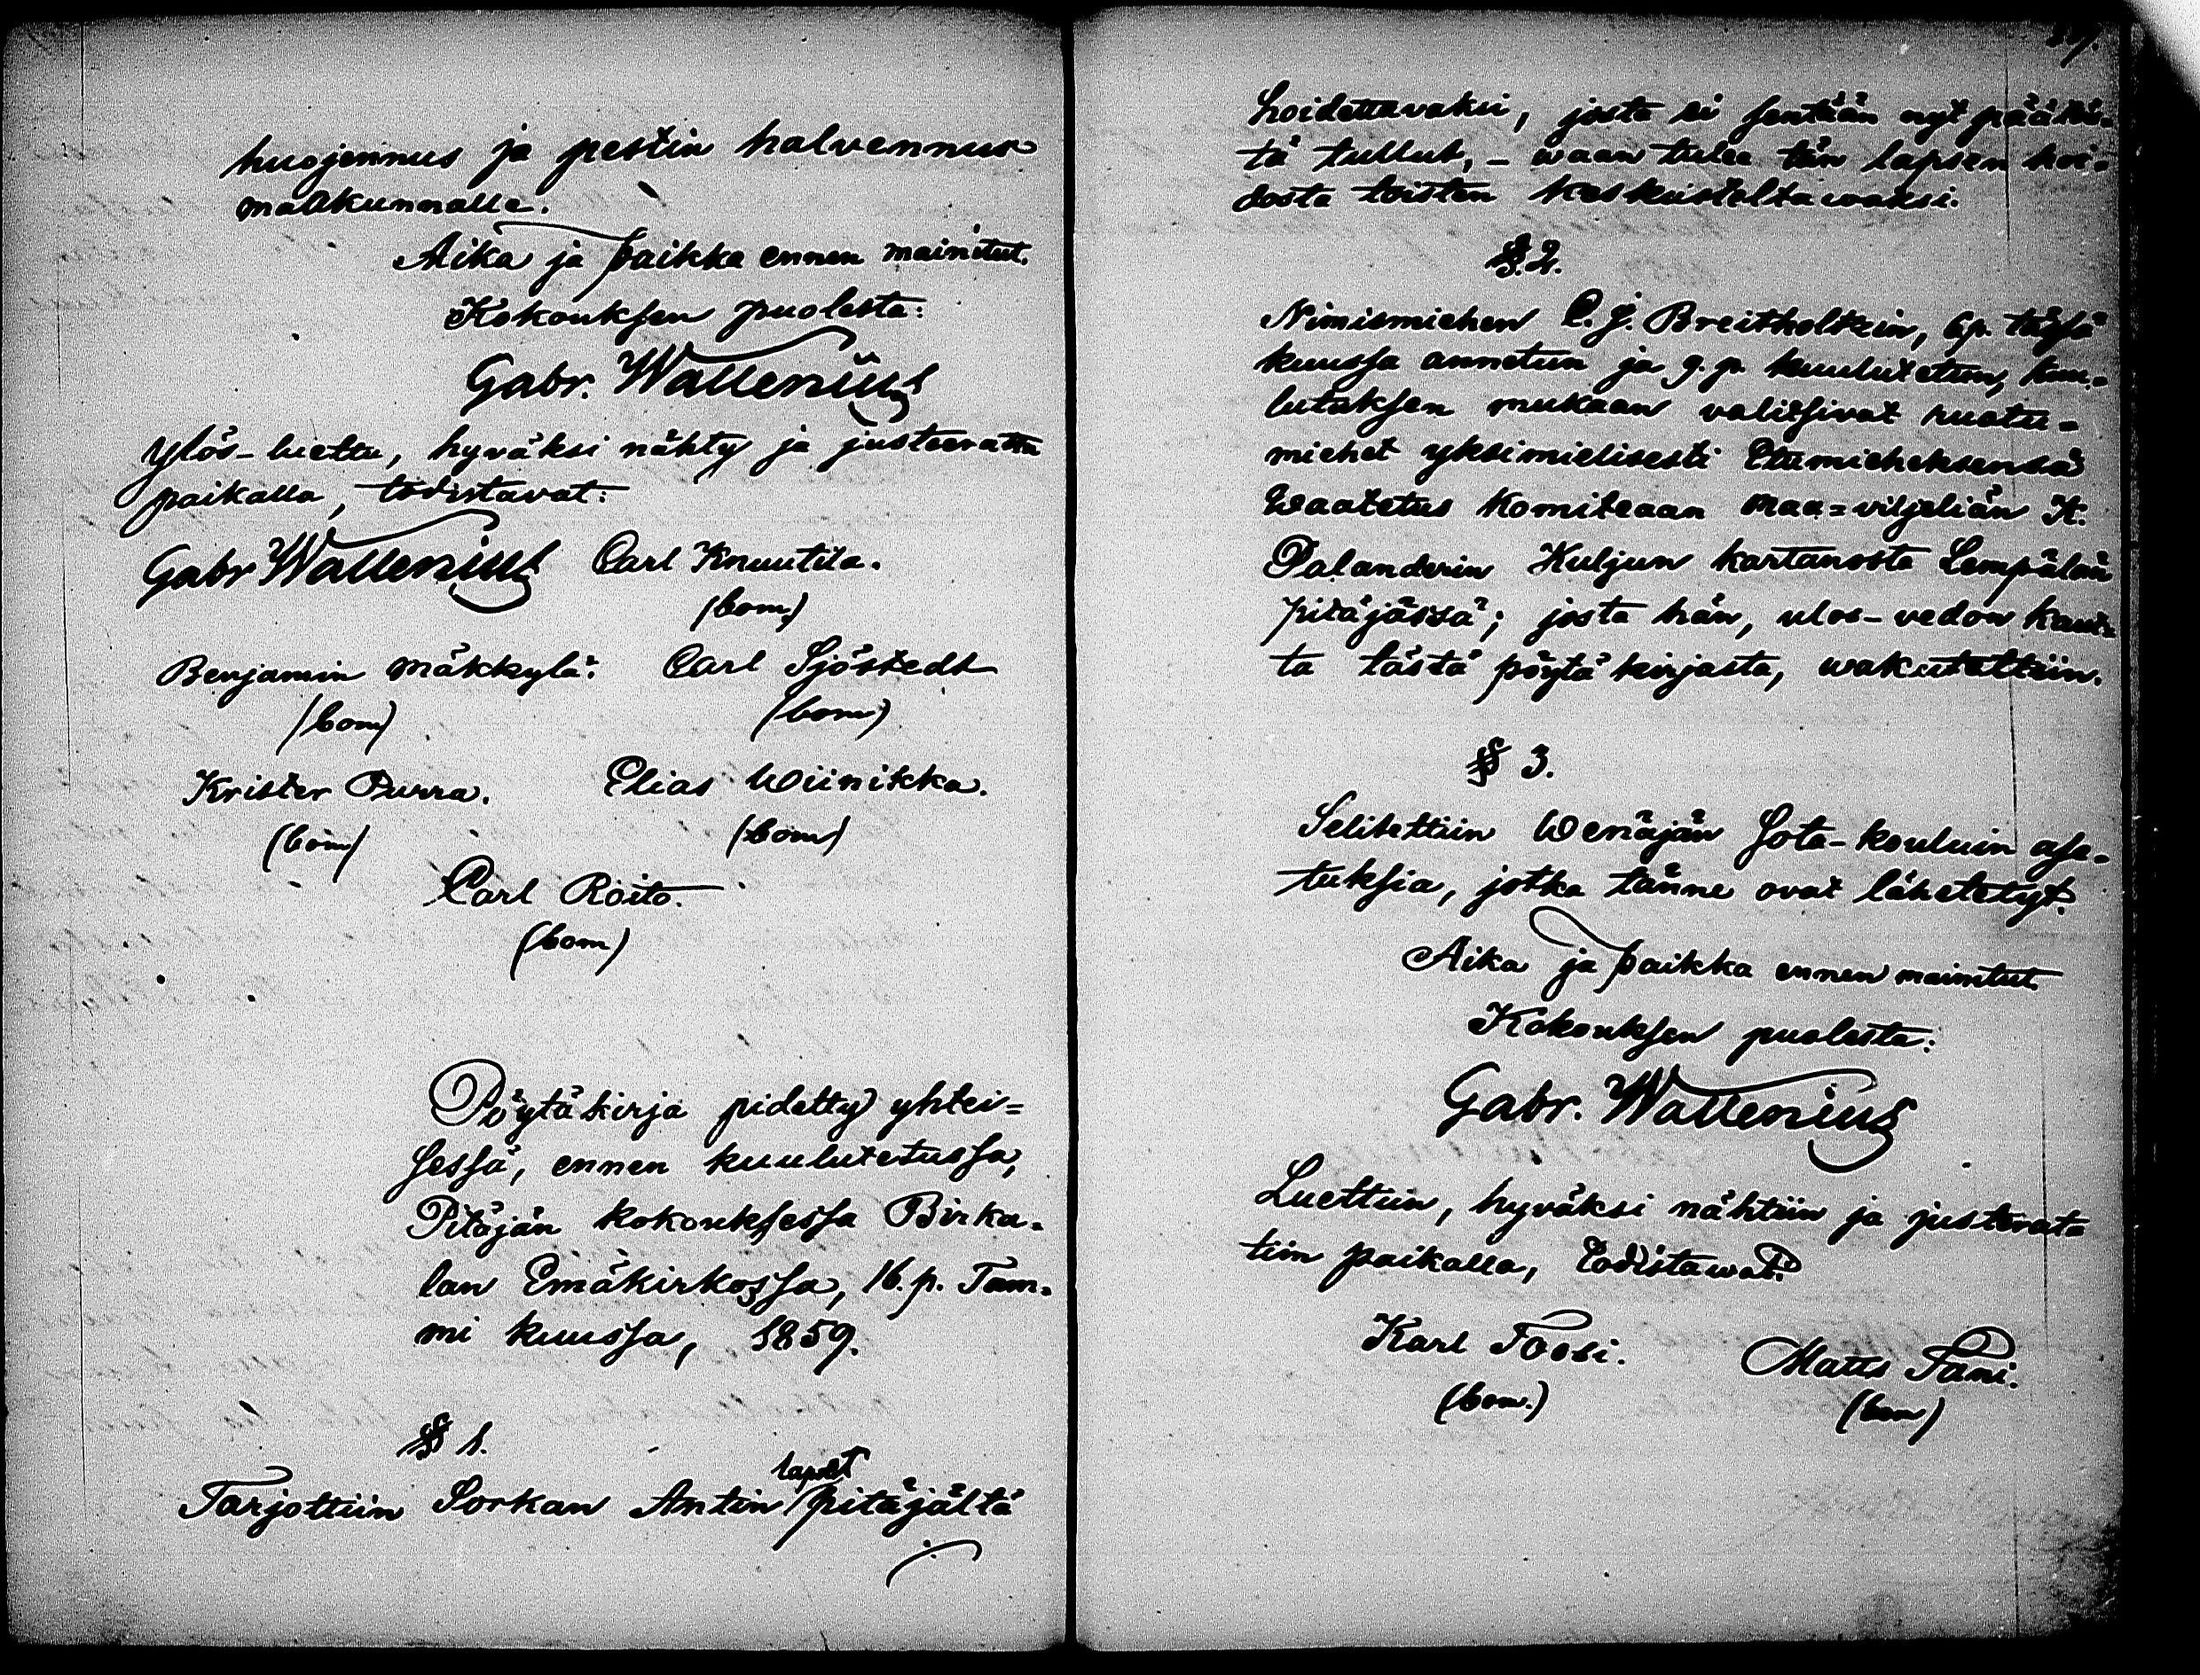 huojennus ja pestin halvennus
maakunnalle.
Aika ja paikka ennen mainitut.
Kokouksen puolesta:
Gabr. Wallenius
Ylös-luettu, hyväksi nähty ja justeerattu
paikalla, todistavat:
Gabr Wallenius Carl Knuutila.
(bom)
Benjamin Mäkkylä. Carl Sjöstedt
(bom) (bom)
Krister Purra. Elias Wiinikka.
(bom) (bom)
Carl Roito.
(bom)
Pöytäkirja pidetty yhtei=
sessä, ennen kuulutetussa,
Pitäjän kokouksessa Birka-
lan Emäkirkossa, 16. p. Tam-
mi kuussa, 1859.
§ 1.
lapset
Tarjottiin Sorkan Antin pitäjältä
./.
hoidettavaksi, josta ei sentään nyt päätös-
tä tullut, - waan tulee tän lapsen hoi-
dosta toisten keskusteltawaksi.
§. 2.
Nimismiehen C. J. Breitholtzin, 6 p. tässä
kuussa annetun ja 9. p. kuulutetun, kuu-
lutuksen mukaan valitsivat ruotu-
miehet yksimielisesti Etumieheksensä
Waatetus Komiteaan maa=viljeliän K.
Palanderin Kuljun kartanosta Lempälän
pitäjässä; josta hän, ulos-vedon kaut-
ta tästä pöytäkirjasta, wakutettiin.
§ 3.
Selitettiin Wenäjän Sota-kouluin ase-
tuksia, jotka tänne ovat lähetetyt.
Aika ja paikka ennen mainitut.
Kokouksen puolesta:
Gabr. Wallenius
Luettiin, hyväksi nähtiin ja justerata
tiin paikalla, todistawat:
Karl Toosi. Matts Tani.
(bom.) (bom)